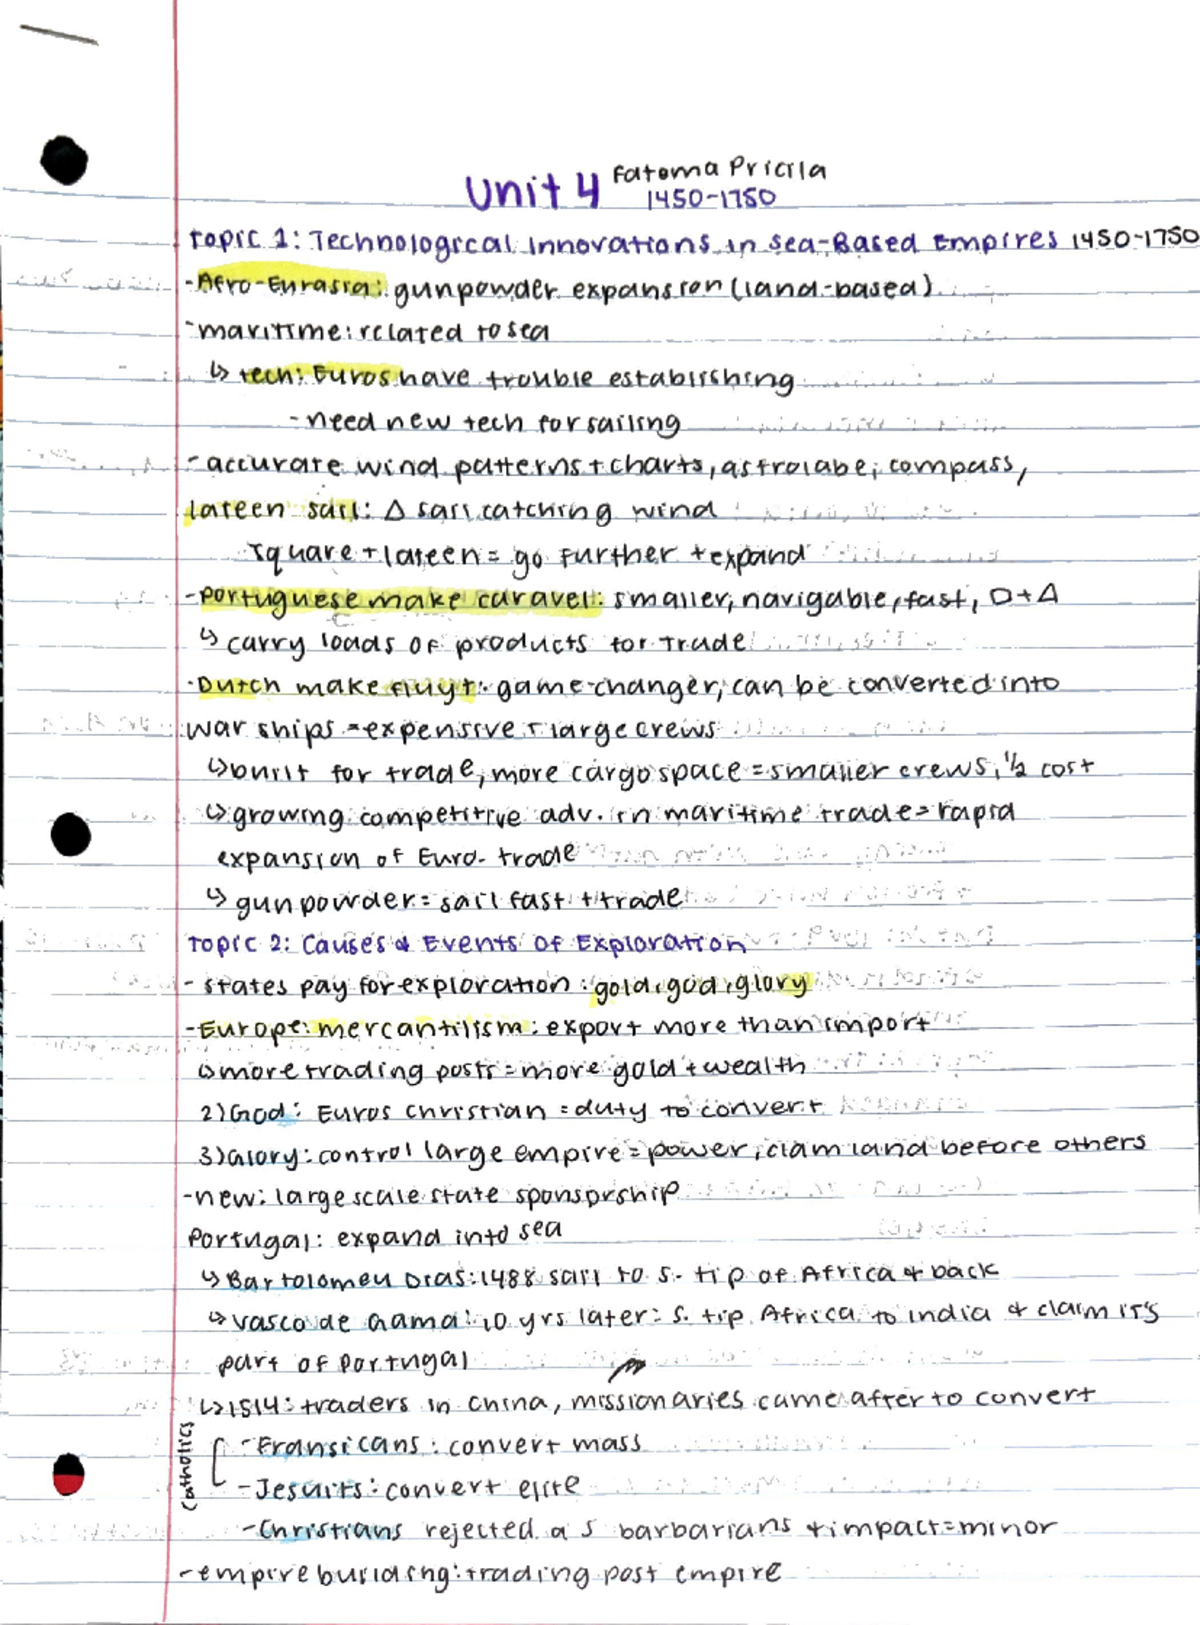 Unit 4 Fatema Pricila
1450-1750
Topic 1: Technological Innovations in Sea-Based Empires 1450-1750
-Afro-Eurasia: gunpowder expansion (land-based)
-maritime: related to sea
↳ tech: Euros have trouble establishing
-need new tech for sailing
-accurate wind patterns + charts, astrolabe, compass,
lateen sail: Δ sail catching wind
square + lateen = go further + expand
-Portuguese make caravel: smaller, navigable, fast, □ + Δ
↳ carry loads of products for trade
-Dutch make fluyt: game-changer, can be converted into
war ships = expensive + large crews
↳ built for trade, more cargo space = smaller crews, 1/2 cost
↳ growing competitive adv. in maritime trade = rapid
expansion of Euro. trade
↳ gunpowder = sail fast + trade
Topic 2: Causes & Events of Exploration
-states pay for exploration: gold, god, glory
-Europe: mercantilism: export more than import
↳ more trading posts = more gold + wealth
2) God: Euros christian = duty to convert
3) Glory: control large empire = power, claim land before others
-new: large scale state sponsorship
Portugal: expand into sea
↳ Bartolomeu Dias: 1488 sail to S. tip of Africa & back
↳ Vasco de Gama: 10 yrs later: S. tip Africa to India & claim it's
part of Portugal
↳ 1514: traders in China, missionaries came after to convert
Catholics
-Fransicans: convert mass
-Jesuits: convert elite
-Christians rejected as barbarians + impact = minor
-empire building: trading post empire